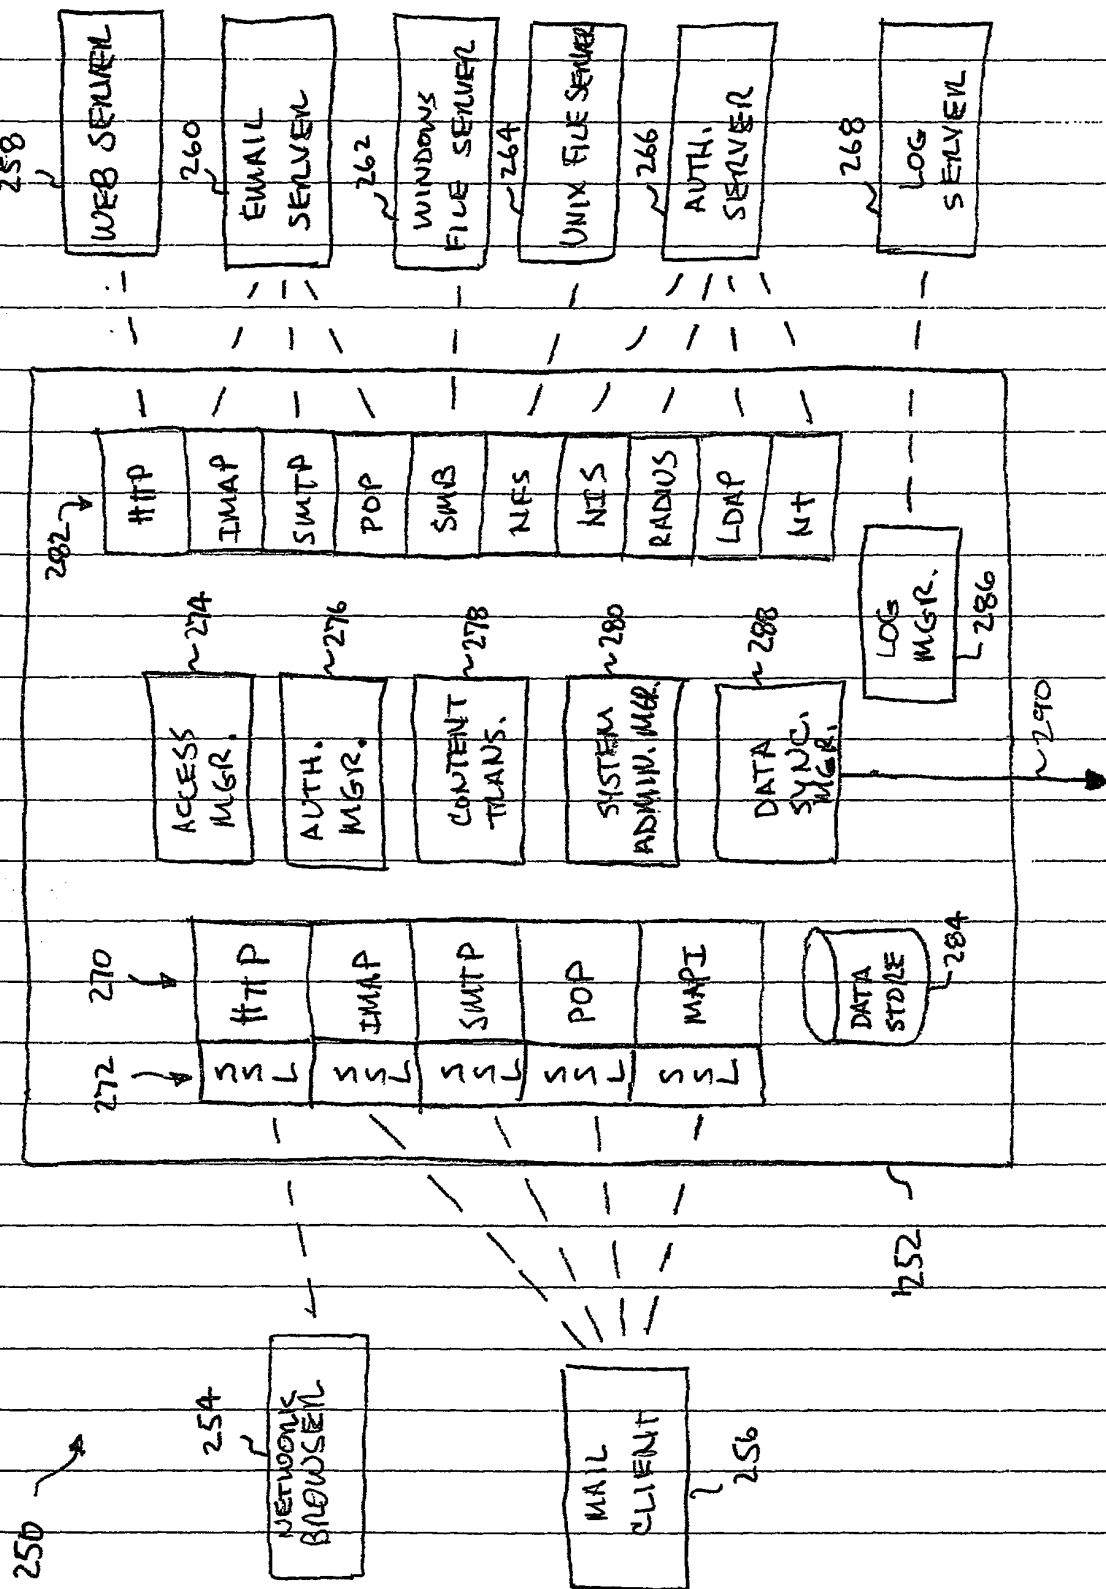 250
254
NETWORK
BROWSER
MAIL
CLIENT
256
252
272
270
SSL
HTTP
SSL
IMAP
SSL
SMTP
SSL
POP
SSL
MAPI
DATA
STORE
284
ACCESS
MGR.
274
AUTH.
MGR.
276
CONTENT
TRANS.
278
SYSTEM
ADMIN. MGR.
280
DATA
SYNC.
MGR.
288
290
LOG
MGR.
286
282
HTTP
IMAP
SMTP
POP
SMB
NFS
NIS
RADIUS
LDAP
NT
258
WEB SERVER
260
EMAIL
SERVER
262
WINDOWS
FILE SERVER
264
UNIX FILE SERVER
266
AUTH.
SERVER
268
LOG
SERVER